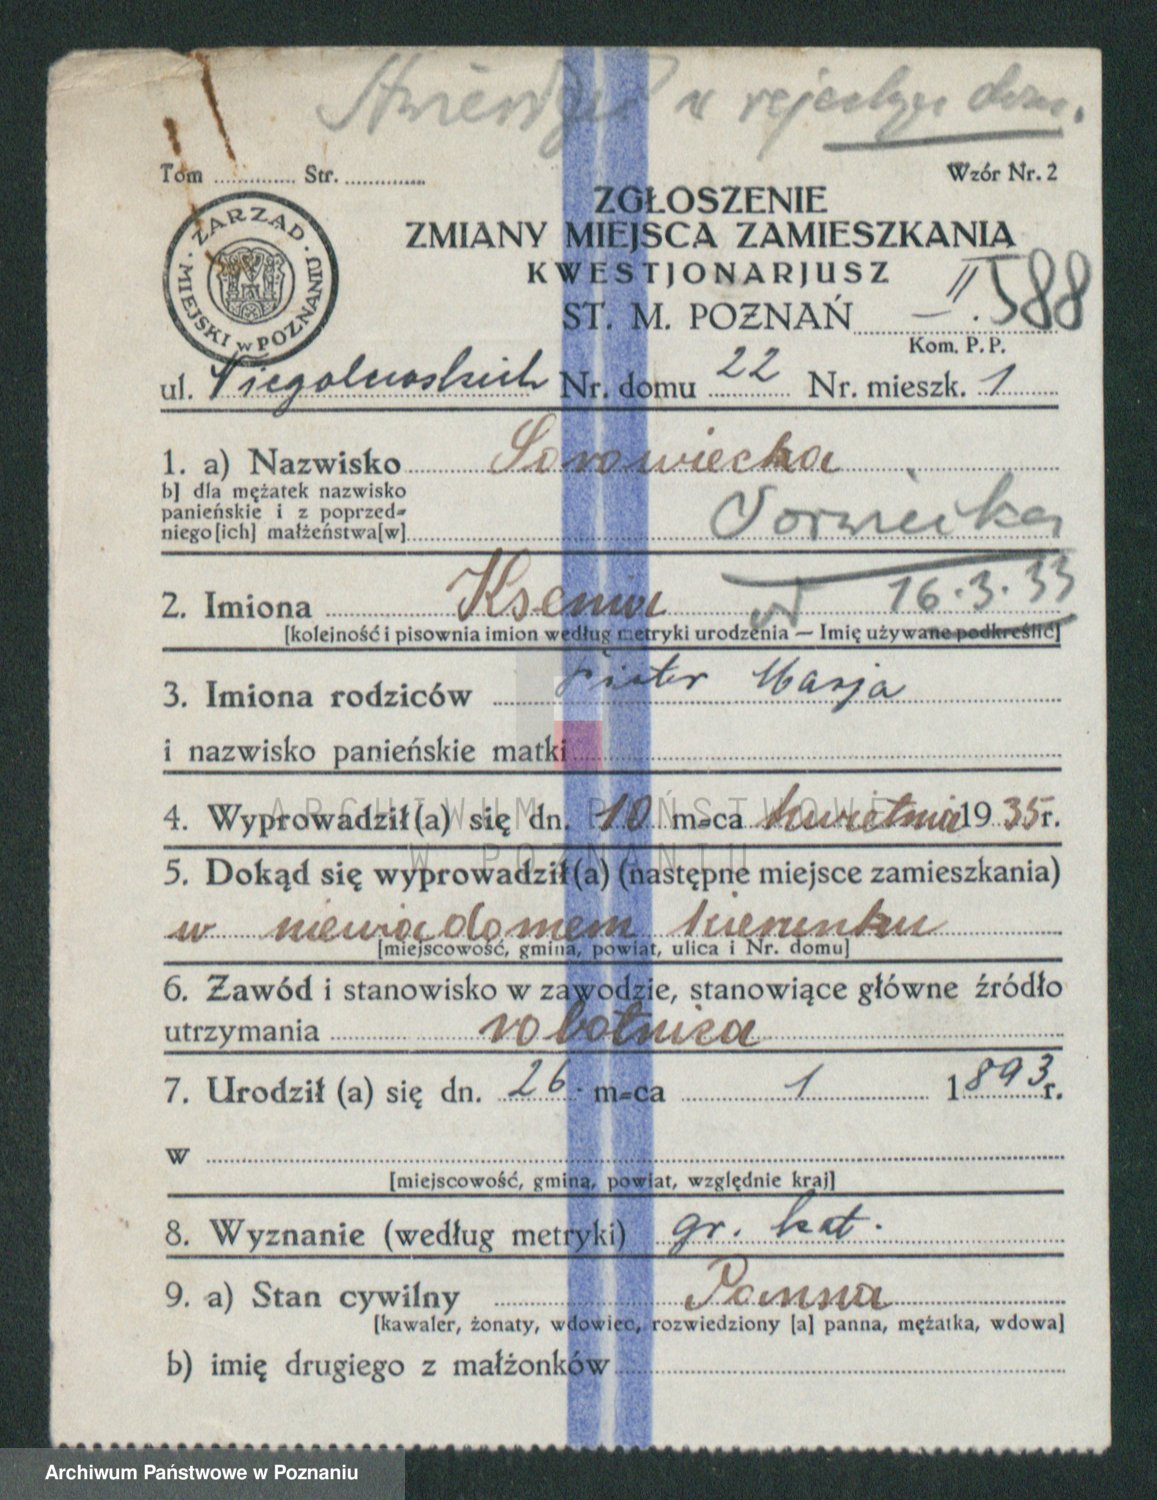 w rejestrze dom.
Tom Str. Wzór Nr. 2
ZARZĄD MIEJSKI w POZNANIU
ZGŁOSZENIE
ZMIANY MIEJSCA ZAMIESZKANIA
KWESTJONARJUSZ
ST. M. POZNAŃ II 588
Kom. P. P.
ul. Niegolewskich Nr. domu 22 Nr. mieszk. 1
1. a) Nazwisko Sorowiecka
b] dla mężatek nazwisko
panieńskie i z poprzed=
niego[ich] małżeństwa[w]
Sorwiecka
2. Imiona Ksenia 16.3.33
[kolejność i pisownia imion według metryki urodzenia — Imię używane podkreślić]
3. Imiona rodziców Piotr Marja
i nazwisko panieńskie matki
4. Wyprowadził(a) się dn. 10 m=ca kwietnia 1935 r.
ARCHIWUM PAŃSTWOWE
W POZNANIU
5. Dokąd się wyprowadził(a) (następne miejsce zamieszkania)
w niewiadomem kierunku
[miejscowość, gmina, powiat, ulica i Nr. domu]
6. Zawód i stanowisko w zawodzie, stanowiące główne źródło
utrzymania robotnica
7. Urodził (a) się dn. 26 m=ca 1 1893 r.
w
[miejscowość, gmina, powiat, względnie kraj]
8. Wyznanie (według metryki) gr. kat.
9. a) Stan cywilny Panna
[kawaler, żonaty, wdowiec, rozwiedziony [a] panna, mężatka, wdowa]
b) imię drugiego z małżonków
Archiwum Państwowe w Poznaniu